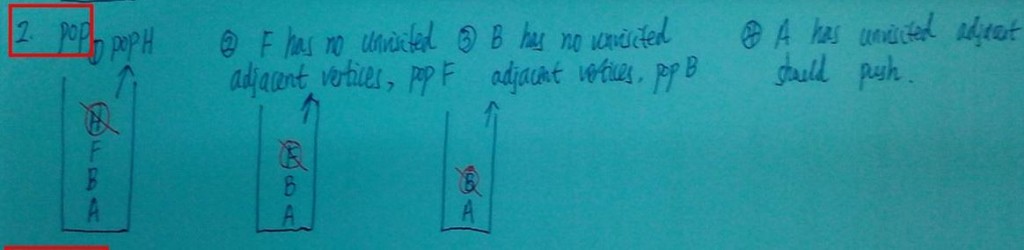 2. pop
① pop H
② F has no unvisited
adjacent vertices, pop F
③ B has no unvisited
adjacent vertices, pop B
④ A has unvisited adjacent
should push.
H
F
B
A
F
B
A
B
A